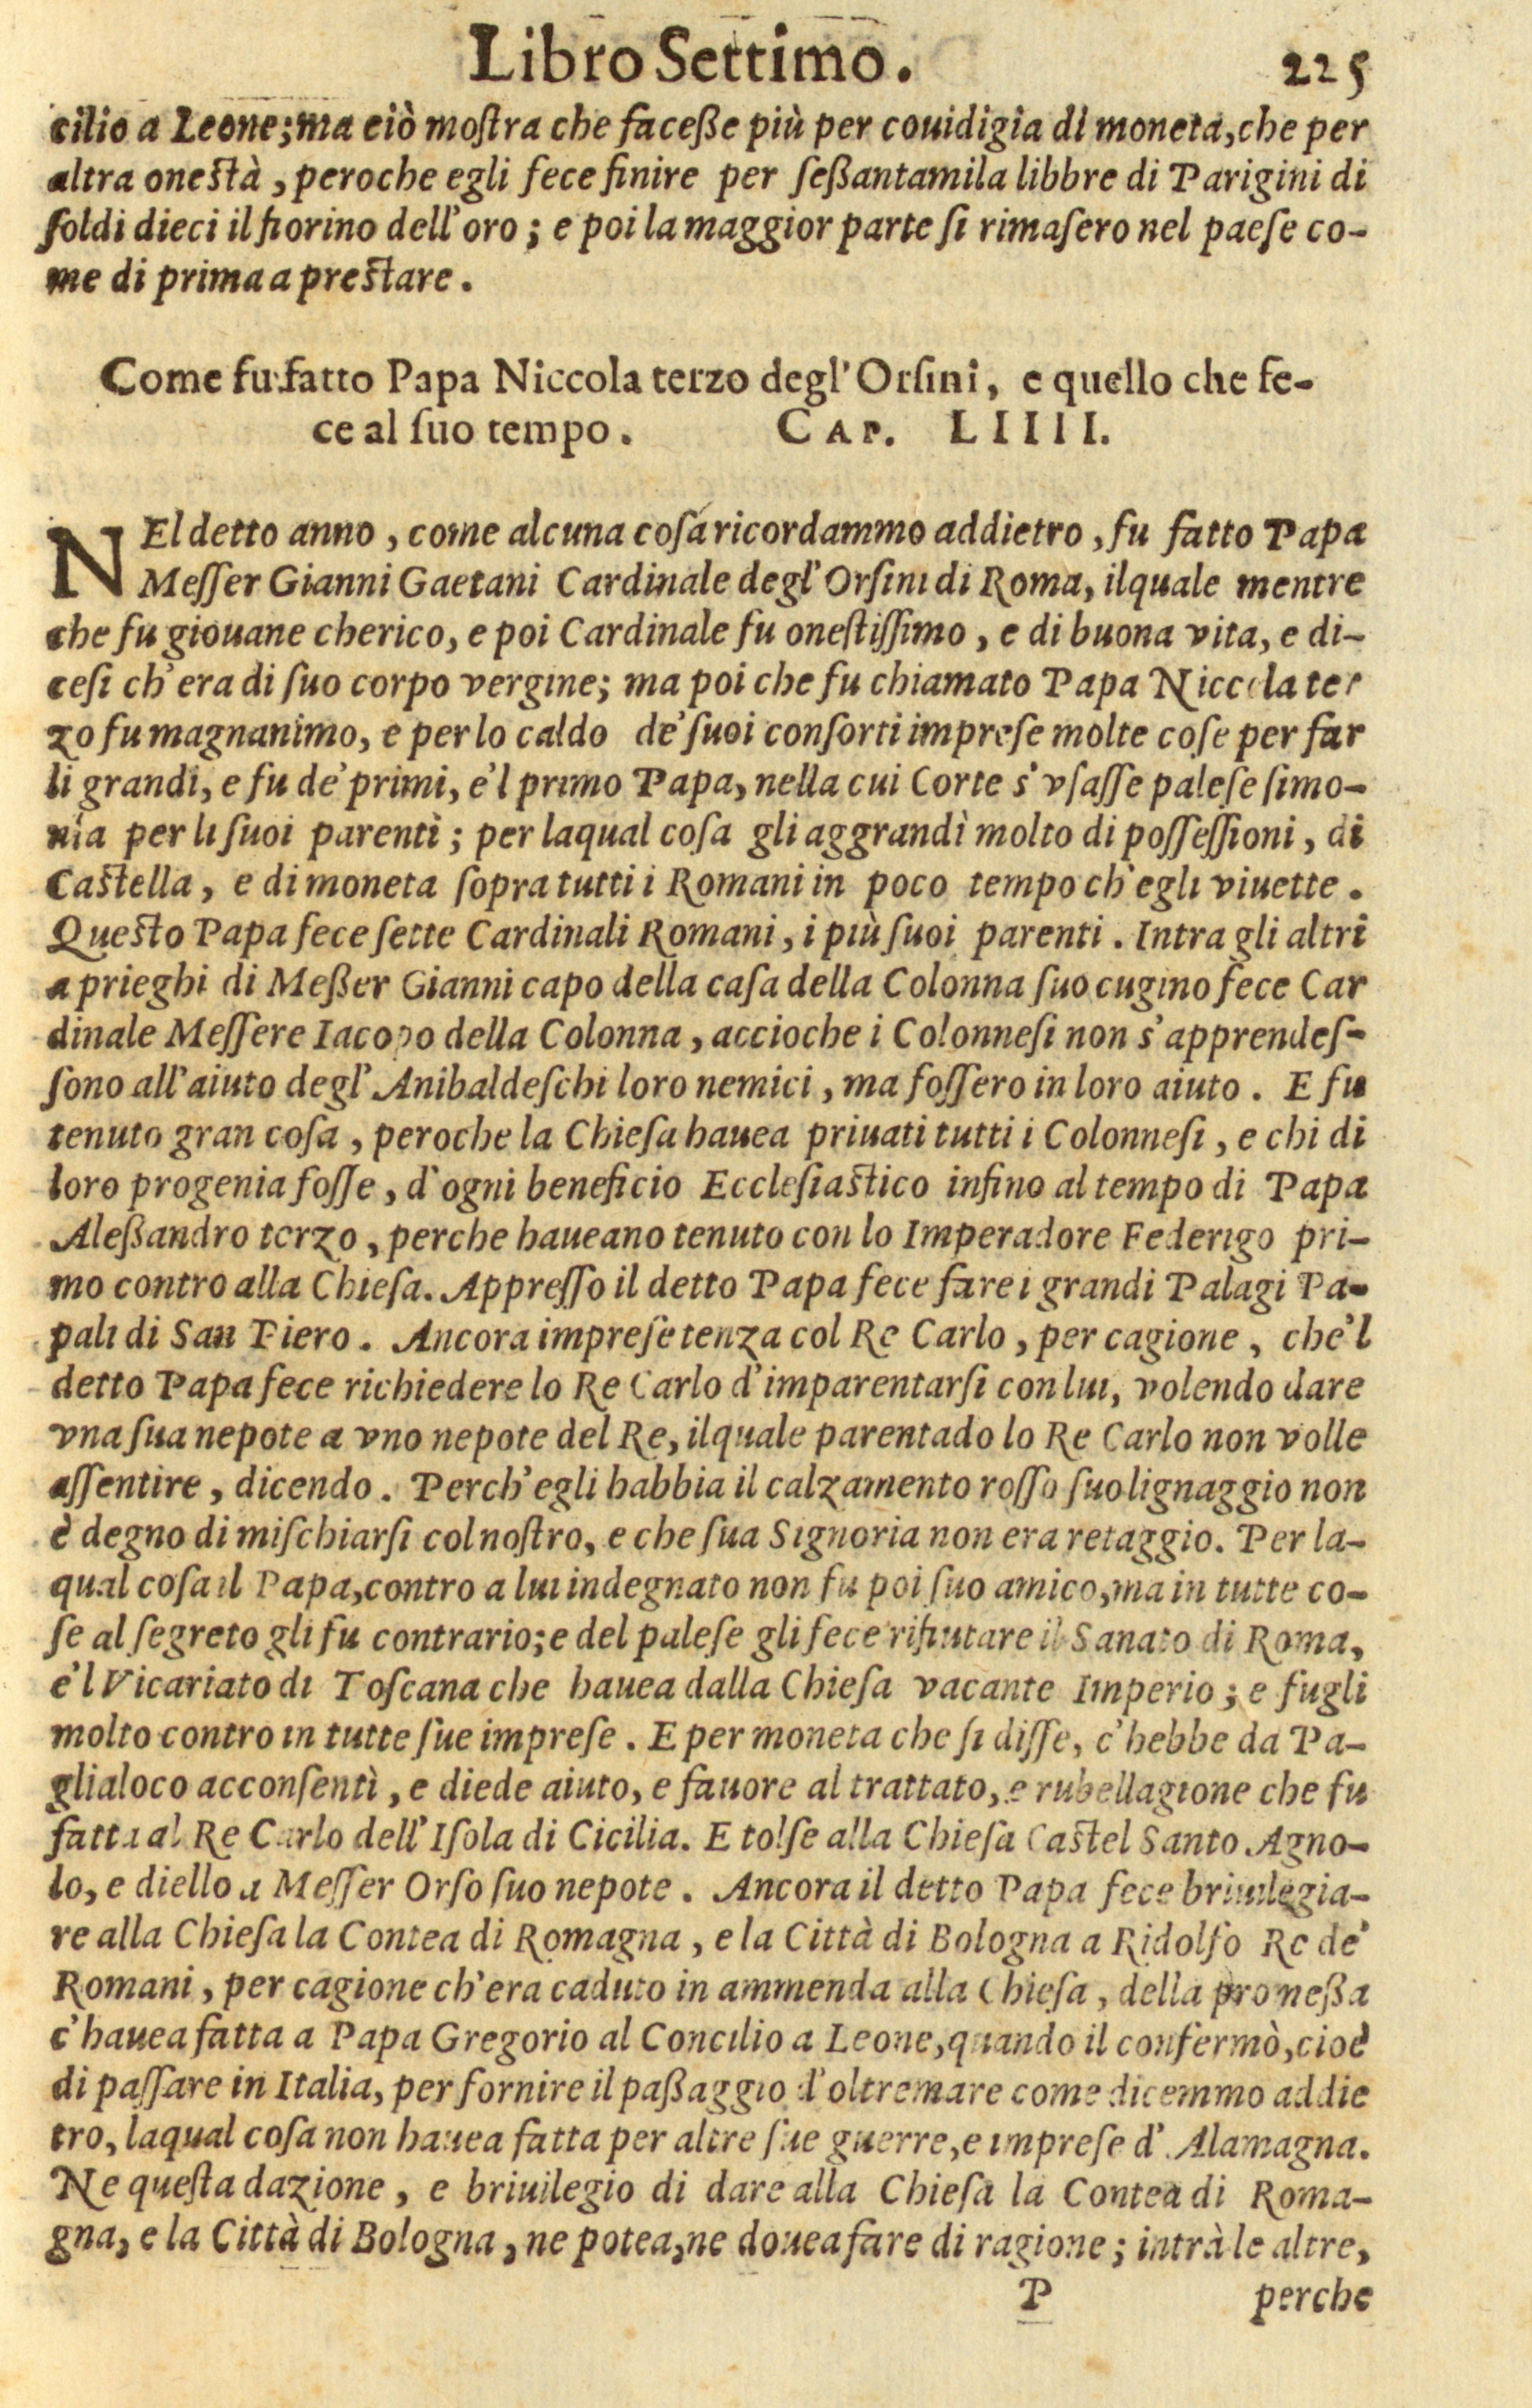 Libro Settimo. 225
cilio a Leone; ma ciò moſtra che faceße più per couidigia di moneta, che per
altra oneſtà, peroche egli fece finire per ſeßantamila libbre di Parigini di
ſoldi dieci il fiorino dell'oro; e poi la maggior parte ſi rimaſero nel paeſe co-
me di prima a preſtare.
Come fu fatto Papa Niccola terzo degl'Orſini, e quello che fe-
ce al ſuo tempo. CAP. LIIII.
NEl detto anno, come alcuna coſa ricordammo addietro, fu fatto Papa
Meſſer Gianni Gaetani Cardinale degl'Orſini di Roma, ilquale mentre
che fu giouane cherico, e poi Cardinale fu oneſtiſſimo, e di buona vita, e di-
ceſi ch'era di ſuo corpo vergine; ma poi che fu chiamato Papa Niccola ter
zo fu magnanimo, e per lo caldo de' ſuoi conſorti impreſe molte coſe per far
li grandi, e fu de' primi, e'l primo Papa, nella cui Corte s'vſaſſe paleſe ſimo-
nía per li ſuoi parenti; per laqual coſa gli aggrandì molto di poſſeſſioni, di
Caſtella, e di moneta ſopra tutti i Romani in poco tempo ch'egli viuette.
Queſto Papa fece ſette Cardinali Romani, i più ſuoi parenti. Intra gli altri
a prieghi di Meßer Gianni capo della caſa della Colonna ſuo cugino fece Car
dinale Meſſere Iacopo della Colonna, accioche i Colonneſi non s'apprendeſ-
ſono all'aiuto degl'Anibaldeſchi loro nemici, ma foſſero in loro aiuto. E fu
tenuto gran coſa, peroche la Chieſa hauea priuati tutti i Colonneſi, e chi di
loro progenia foſſe, d'ogni beneficio Eccleſiaſtico infino al tempo di Papa
Aleßandro terzo, perche haueano tenuto con lo Imperadore Federigo pri-
mo contro alla Chieſa. Appreſſo il detto Papa fece fare i grandi Palagi Pa-
pali di San Piero. Ancora impreſe tenza col Re Carlo, per cagione, che'l
detto Papa fece richiedere lo Re Carlo d'imparentarſi con lui, volendo dare
vna ſua nepote a vno nepote del Re, ilquale parentado lo Re Carlo non volle
aſſentire, dicendo. Perch'egli habbia il calzamento roſſo ſuo lignaggio non
è degno di miſchiarſi col noſtro, e che ſua Signoria non era retaggio. Per la-
qual coſa il Papa, contro a lui indegnato non fu poi ſuo amico, ma in tutte co-
ſe al ſegreto gli fu contrario; e del paleſe gli fece rifiutare il Sanato di Roma,
e'l Vicariato di Toſcana che hauea dalla Chieſa vacante Imperio; e fugli
molto contro in tutte ſue impreſe. E per moneta che ſi diſſe, c'hebbe da Pa-
glialoco acconſentì, e diede aiuto, e fauore al trattato, e rubellagione che fu
fatta al Re Carlo dell'Iſola di Cicilia. E tolſe alla Chieſa Caſtel Santo Agno-
lo, e diello a Meſſer Orſo ſuo nepote. Ancora il detto Papa fece briuilegia-
re alla Chieſa la Contea di Romagna, e la Città di Bologna a Ridolfo Re de'
Romani, per cagione ch'era caduto in ammenda alla Chieſa, della promeßa
c'hauea fatta a Papa Gregorio al Concilio a Leone, quando il confermò, cioè
di paſſare in Italia, per fornire il paßaggio d'oltremare come dicemmo addie
tro, laqual coſa non hauea fatta per altre ſue guerre, e impreſe d'Alamagna.
Ne queſta dazione, e briuilegio di dare alla Chieſa la Contea di Roma-
gna, e la Città di Bologna, ne potea, ne douea fare di ragione; intrà le altre,
P perche